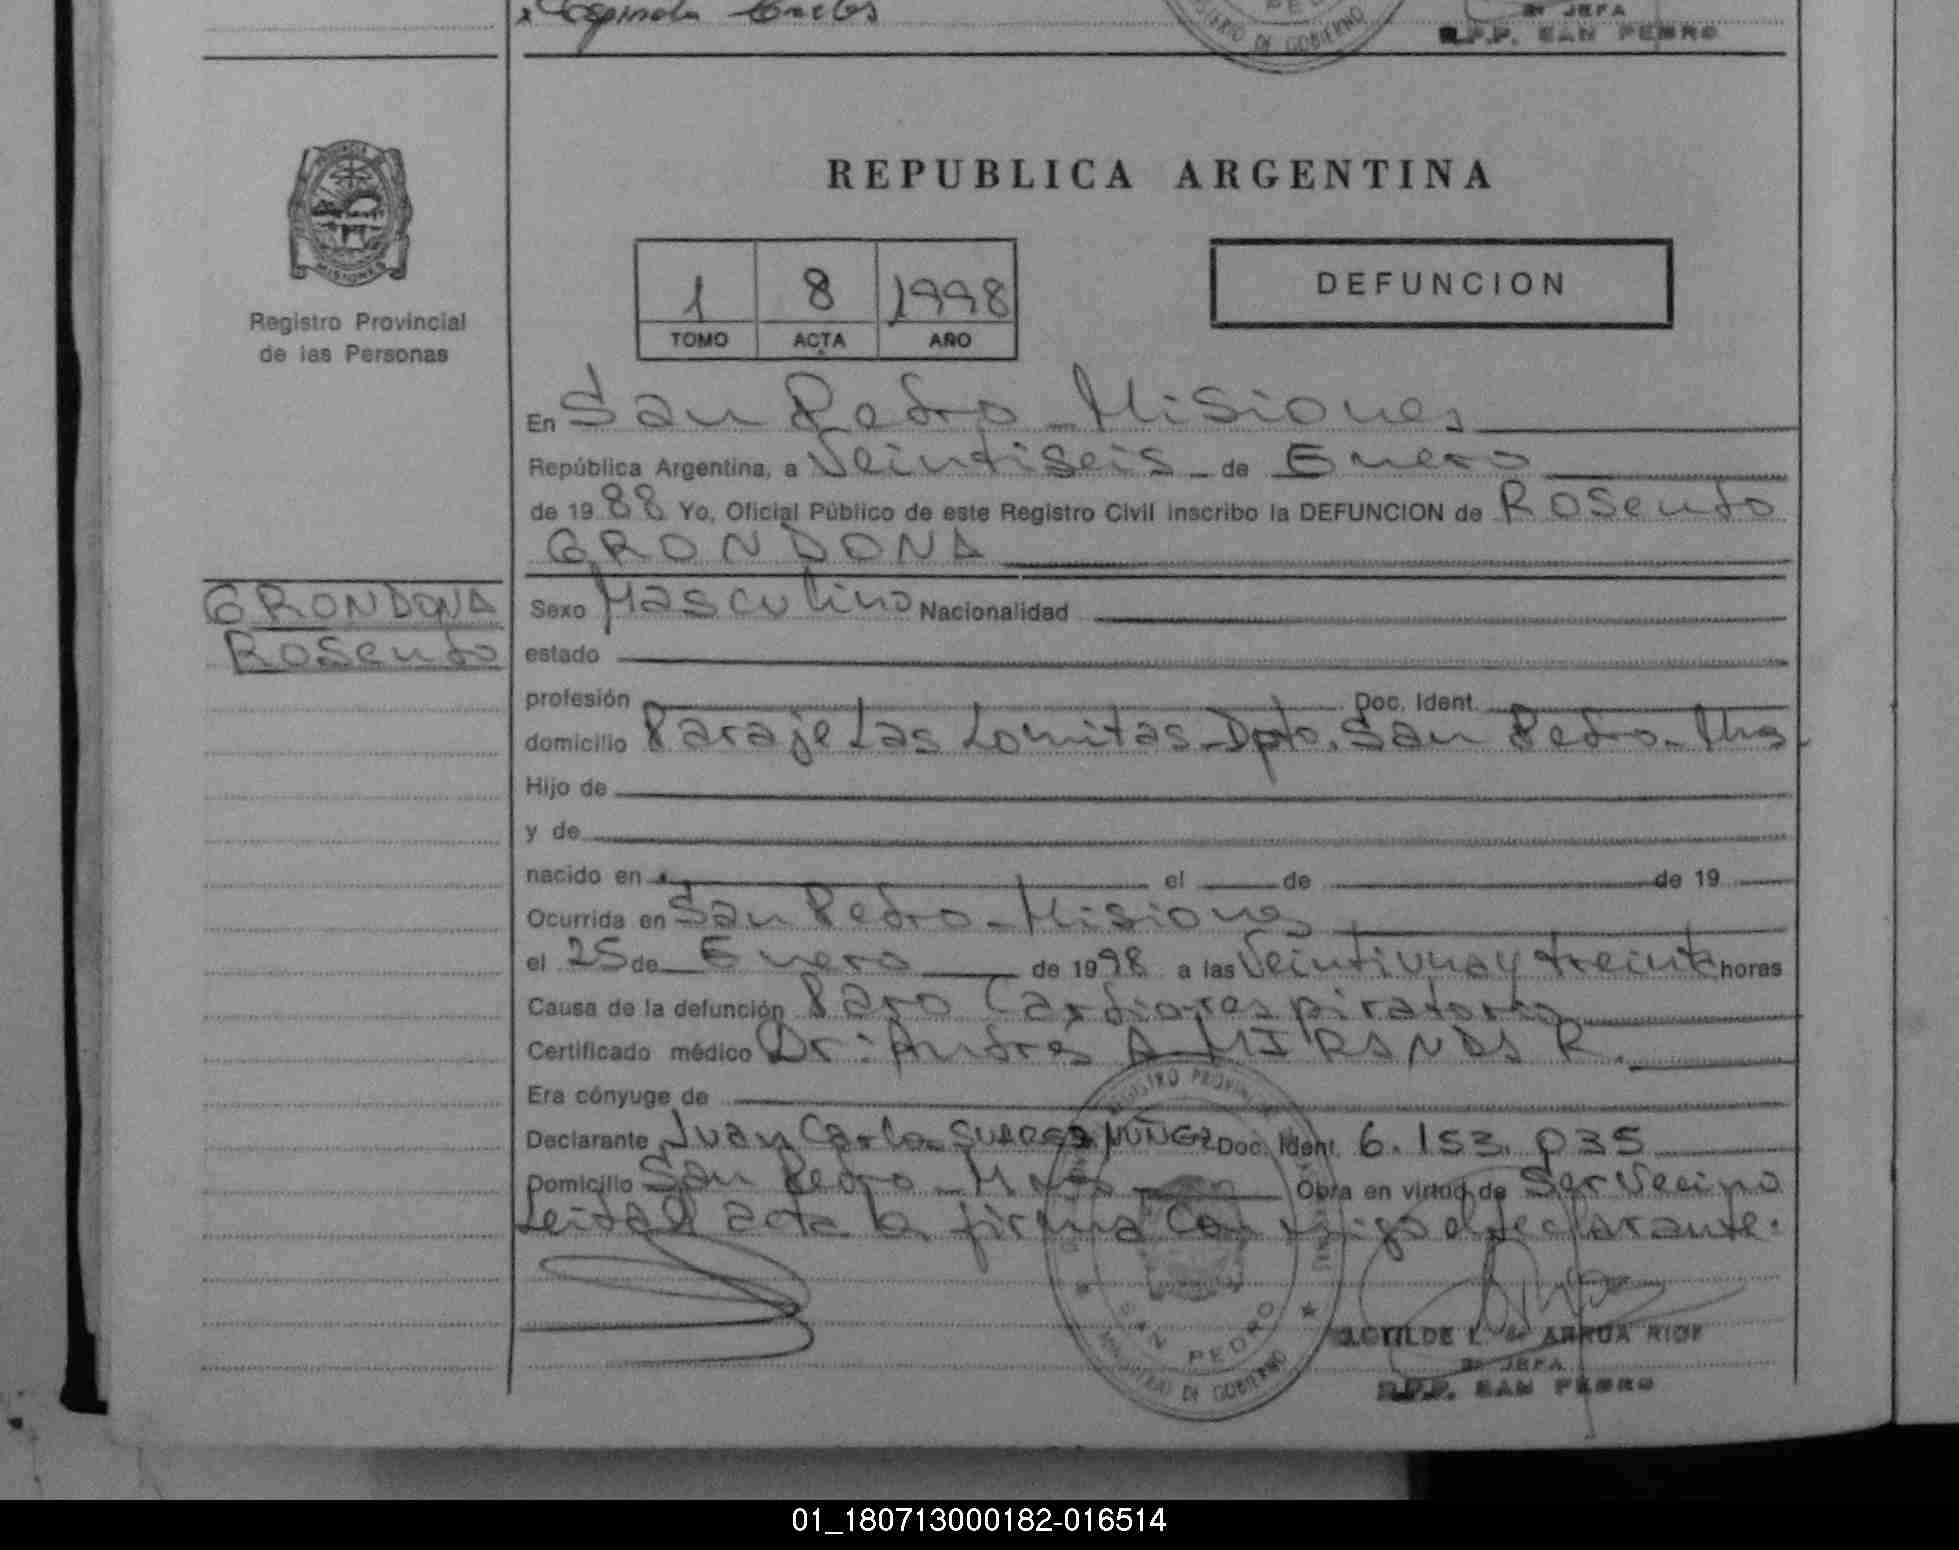 Espindola Carlos
MINISTERIO DE GOBIERNO
2a JEFA
R.P.P. SAN PEDRO
PROVINCIA DE MISIONES
Registro Provincial
de las Personas
REPUBLICA ARGENTINA
1 8 1998
TOMO ACTA AÑO
DEFUNCION
En San Pedro - Misiones
República Argentina, a Veintiseis de Enero
de 1988 Yo, Oficial Público de este Registro Civil inscribo la DEFUNCION de Rosendo
GRONDONA
GRONDONA
Rosendo
Sexo Masculino Nacionalidad
estado
profesión Doc. Ident.
domicilio Paraje Las Lomitas - Dpto. San Pedro - Mnes
Hijo de
y de
nacido en el de de 19
Ocurrida en San Pedro - Misiones
el 25 de Enero de 1998 a las Veintiuna y treinta horas
Causa de la defunción Paro Cardiorespiratorio
Certificado médico Dr: Andres A MIRANDA R.
Era cónyuge de
Declarante Juan Carlos SUAREZ NUÑEZ Doc. Ident. 6.153.035
Domicilio San Pedro - Mnes Obra en virtud de Ser Vecino
Leida el acta la firma conmigo el declarante.
REGISTRO PROVINCIAL DE LAS PERSONAS
SAN PEDRO
MINISTERIO DE GOBIERNO
CLOTILDE I. de ARRUA RIOS
2a JEFA
R.P.P. SAN PEDRO
01_180713000182-016514